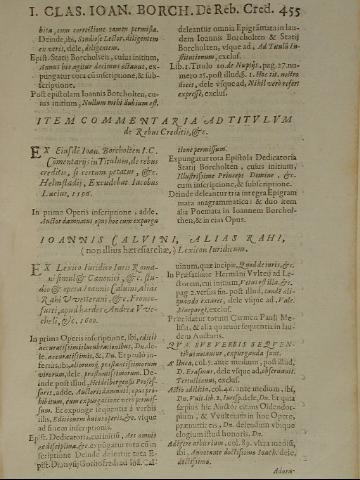 I. CLAS. IOAN. BORCH. De Reb. Cred. 455
bita, cum correctione tamen permissa.
Deinde, ibi,
en veris, dele, diligentem
Epist. Statij Borcholten, cuius initium,
Annus hic agitur decimus octauus, ex-
pungatur tota cũ inscriptione, & sub-
scriptione.
Post epistolam Ioannis Borcholten, cu-
ius initium, Nullum mihi dubium est,
deleantur omnia Epigrãmata in lau-
dem Ioannis Borcholten & Statij
Borcholten, vsque ad, Ad Titulũ In-
stitutionum, exclus.
Lib. 1. Titulo 10. de Nuptijs, pag. 27. nu-
mero 25. post illud, Hoc tit. nostro
dele, vsque ad, Nihil verò refert
expresse, exclus.
ITEM COMMENTARIA AD TITVLVM
de Rebus Creditis, &c.
EX Eiusdẽ Ioan. Borcholten I.C.
Cõmentarijs in Titulum, de rebus
creditis, si certum petatur, &c.
Helmstadij, Excudebat Iacobus
Lucius, 1590.
In primo Operis inscriptione, adde,
Auctor damnatus, opus hoc cum expurgo
tione permissum.
Expungatur tota Epistola Dedicatoria
Statij Borcholten, cuius initium,
Illustrissime Princeps Domine, &c.
cum inscriptione, & subscriptione.
Deinde deleantur tria integra Epigram
mata anagrammatica: & duo item
alia Poemata in Ioannem Borchol-
then, & in eius Opus.
IOANNIS CALVINI, ALIAS KAHL,
(non illius hæresiarchæ,) Lexicon Iuridicum.
EX Lexico Iuridico Iuris Roma-
ni simul & Canonici, &c. stu-
dio & opera Ioannis Caluini, Alias
Kahl VVetterani, &c. Franco-
furti, apud hæredes Andreæ VVe-
cheli, &c. 1600.
In primo Operis inscriptione, ibi, editis
accuratissimis lucubrationibus, Dn. de-
le, accuratissimis, & Dn.
terius, ibi, aliorumque præstantissimorum
virorum, dele, præstantissimorum. De-
inde post illud, Heidelbergensis Profes-
sore, adde, Auctoris damnati, opus pro-
hibitum, cum expurgatione verò permis-
sum. Et expunge sequentia verba
illis, Editio noua, &c. vsque
ad finem inscriptionis.
Epist. Dedicatoria, cui initiũ, Ars omnis
ac disciplina, &c. expungatur tota cũ
scriptione. Deinde deletur tota E-
pist. Dionysij Gothofredi ad Ioã. Cal-
uinum, quæ incipit, Quod de iuris, &c.
In Præfatione Hermanni Vulteij ad Le-
ctorem, cui initium, Vetus est illa, &c.
pag. 2. versus fin. post illud,
dele vsque ad, Vale.
exclus.
Præterea
sequentia in lau-
dem Auctoris.
QVÆ SVB VERBIS SEQVEN-
tibus notantur, expurganda sunt.
Abaca, col. 5. ante medium, post illud,
D. Erasmus, dele vsque ad, obseruauit.
Tertullian. exclus.
Actio ædilitia, col. 46. ante medium, ibi,
Dn. Vult. lib. 2. Iurisp. dele, Dn. Et quia
sæpius hic Auctor citans Oldendor-
pium, & Vulteium in hoc Opere,
præmittit eis, Dn. delendum vbique
elogium illud honoris, Dn.
Additio arbitrium, col. 89. vltra mediũ,
ibi, Annotante doctissimo Ioach. dele,
doctissimo.
Adora-